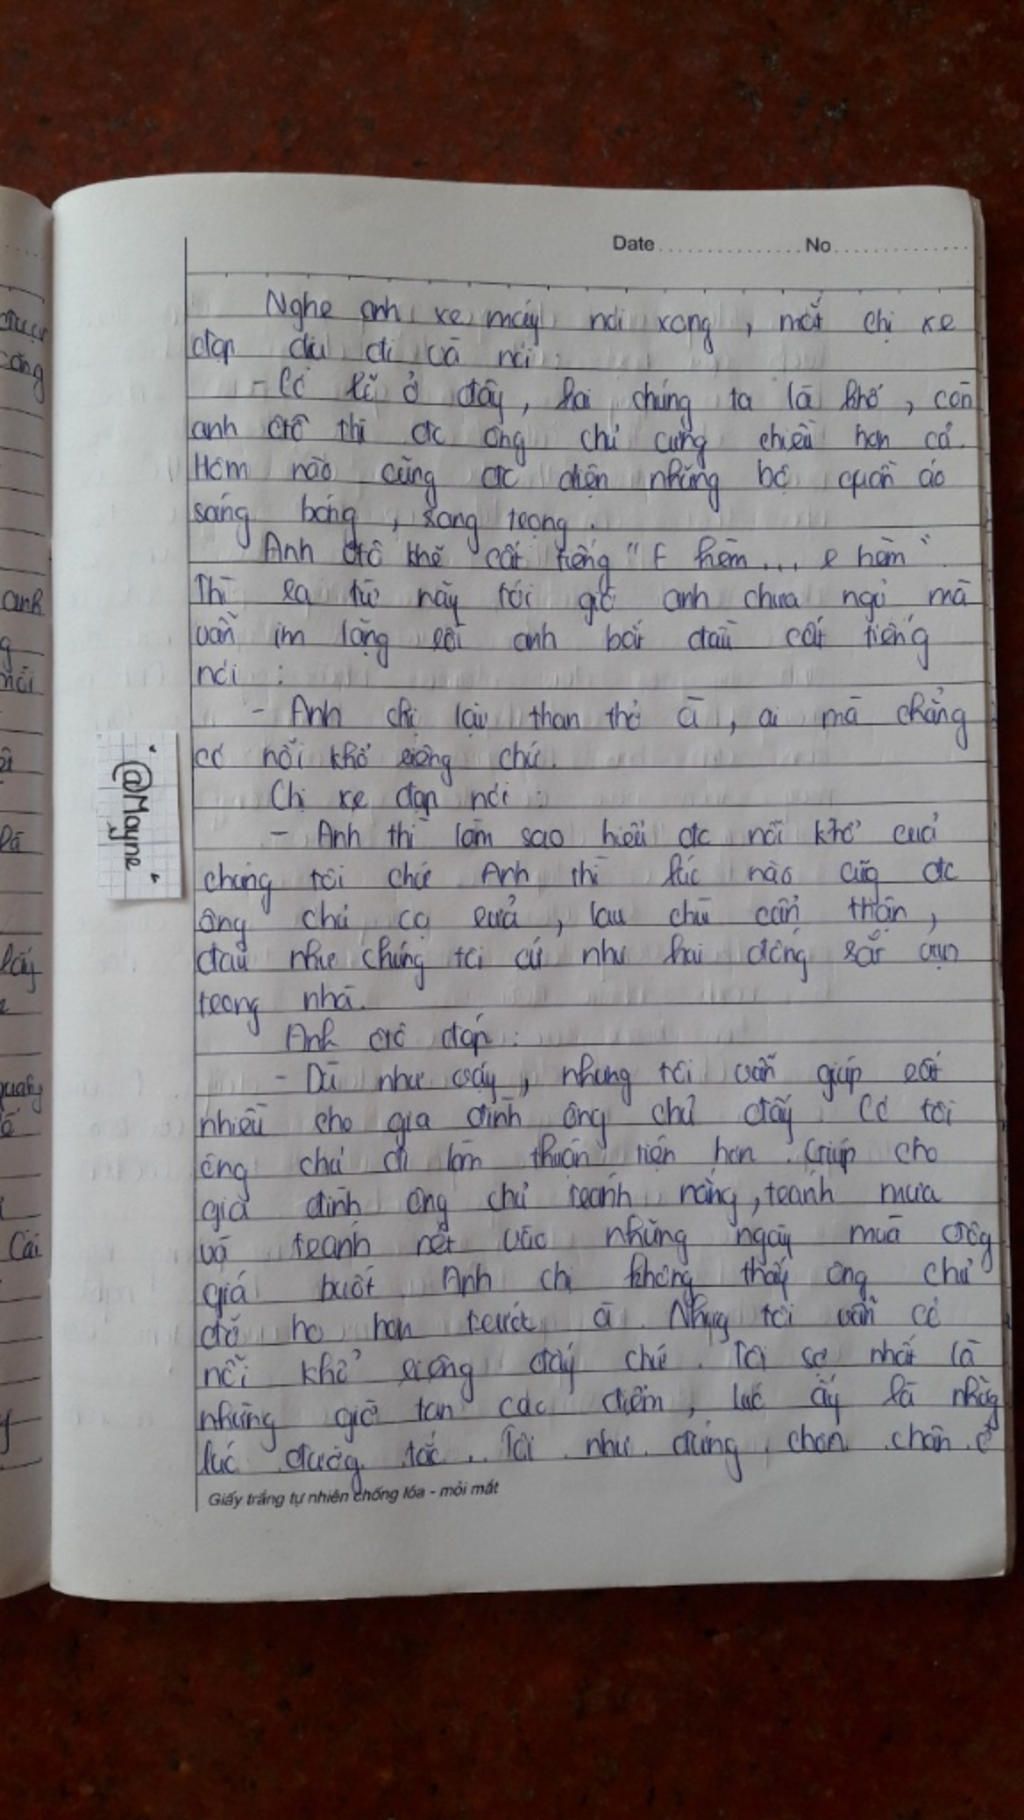 Date.................No.................
Nghe anh xe máy nói xong, mắt chị xe
đạp dịu đi và nói:
- Có lẽ ở đây, hai chúng ta là khổ, còn
anh ôtô thì đc ông chủ cưng chiều hơn cả.
Hôm nào cũng đc diện những bộ quần áo
sáng bóng, sang trọng.
Anh ôtô khẽ cất tiếng "E hèm... e hèm".
Thì ra từ nãy tới giờ anh chưa ngủ mà
vẫn im lặng rồi anh bắt đầu cất tiếng
nói:
- Anh chị lại than thở à, ai mà chẳng
có nỗi khổ riêng chứ.
Chị xe đạp nói:
- Anh thì làm sao hiểu đc nỗi khổ của
chúng tôi chứ Anh thì lúc nào cũg đc
ông chủ cọ rửa, lau chù cẩn thận,
đâu như chúng tôi cứ như hai đống sắt vụn
trong nhà.
Anh ôtô đáp:
- Dù như vậy, nhưng tôi vẫn giúp rất
nhiều cho gia đình ông chủ đấy. Có tôi
ông chủ đi làm thuận tiện hơn. Giúp cho
gia đình ông chủ tránh nắng, tránh mưa
và tránh rét vào những ngày mùa đông
giá buốt. Anh chị không thấy ông chủ
đỡ ho hơn trước à. Nhưg tôi vẫn có
nỗi khổ riêng đấy chứ. Tôi sợ nhất là
những giờ tan cao điểm, lúc ấy là nhữg
lúc đườg tắc. Tôi như đứng chôn chân ở
Giấy trắng tự nhiên chống lóa - mỏi mắt
"@Mayne"
anh
lấy
Cái